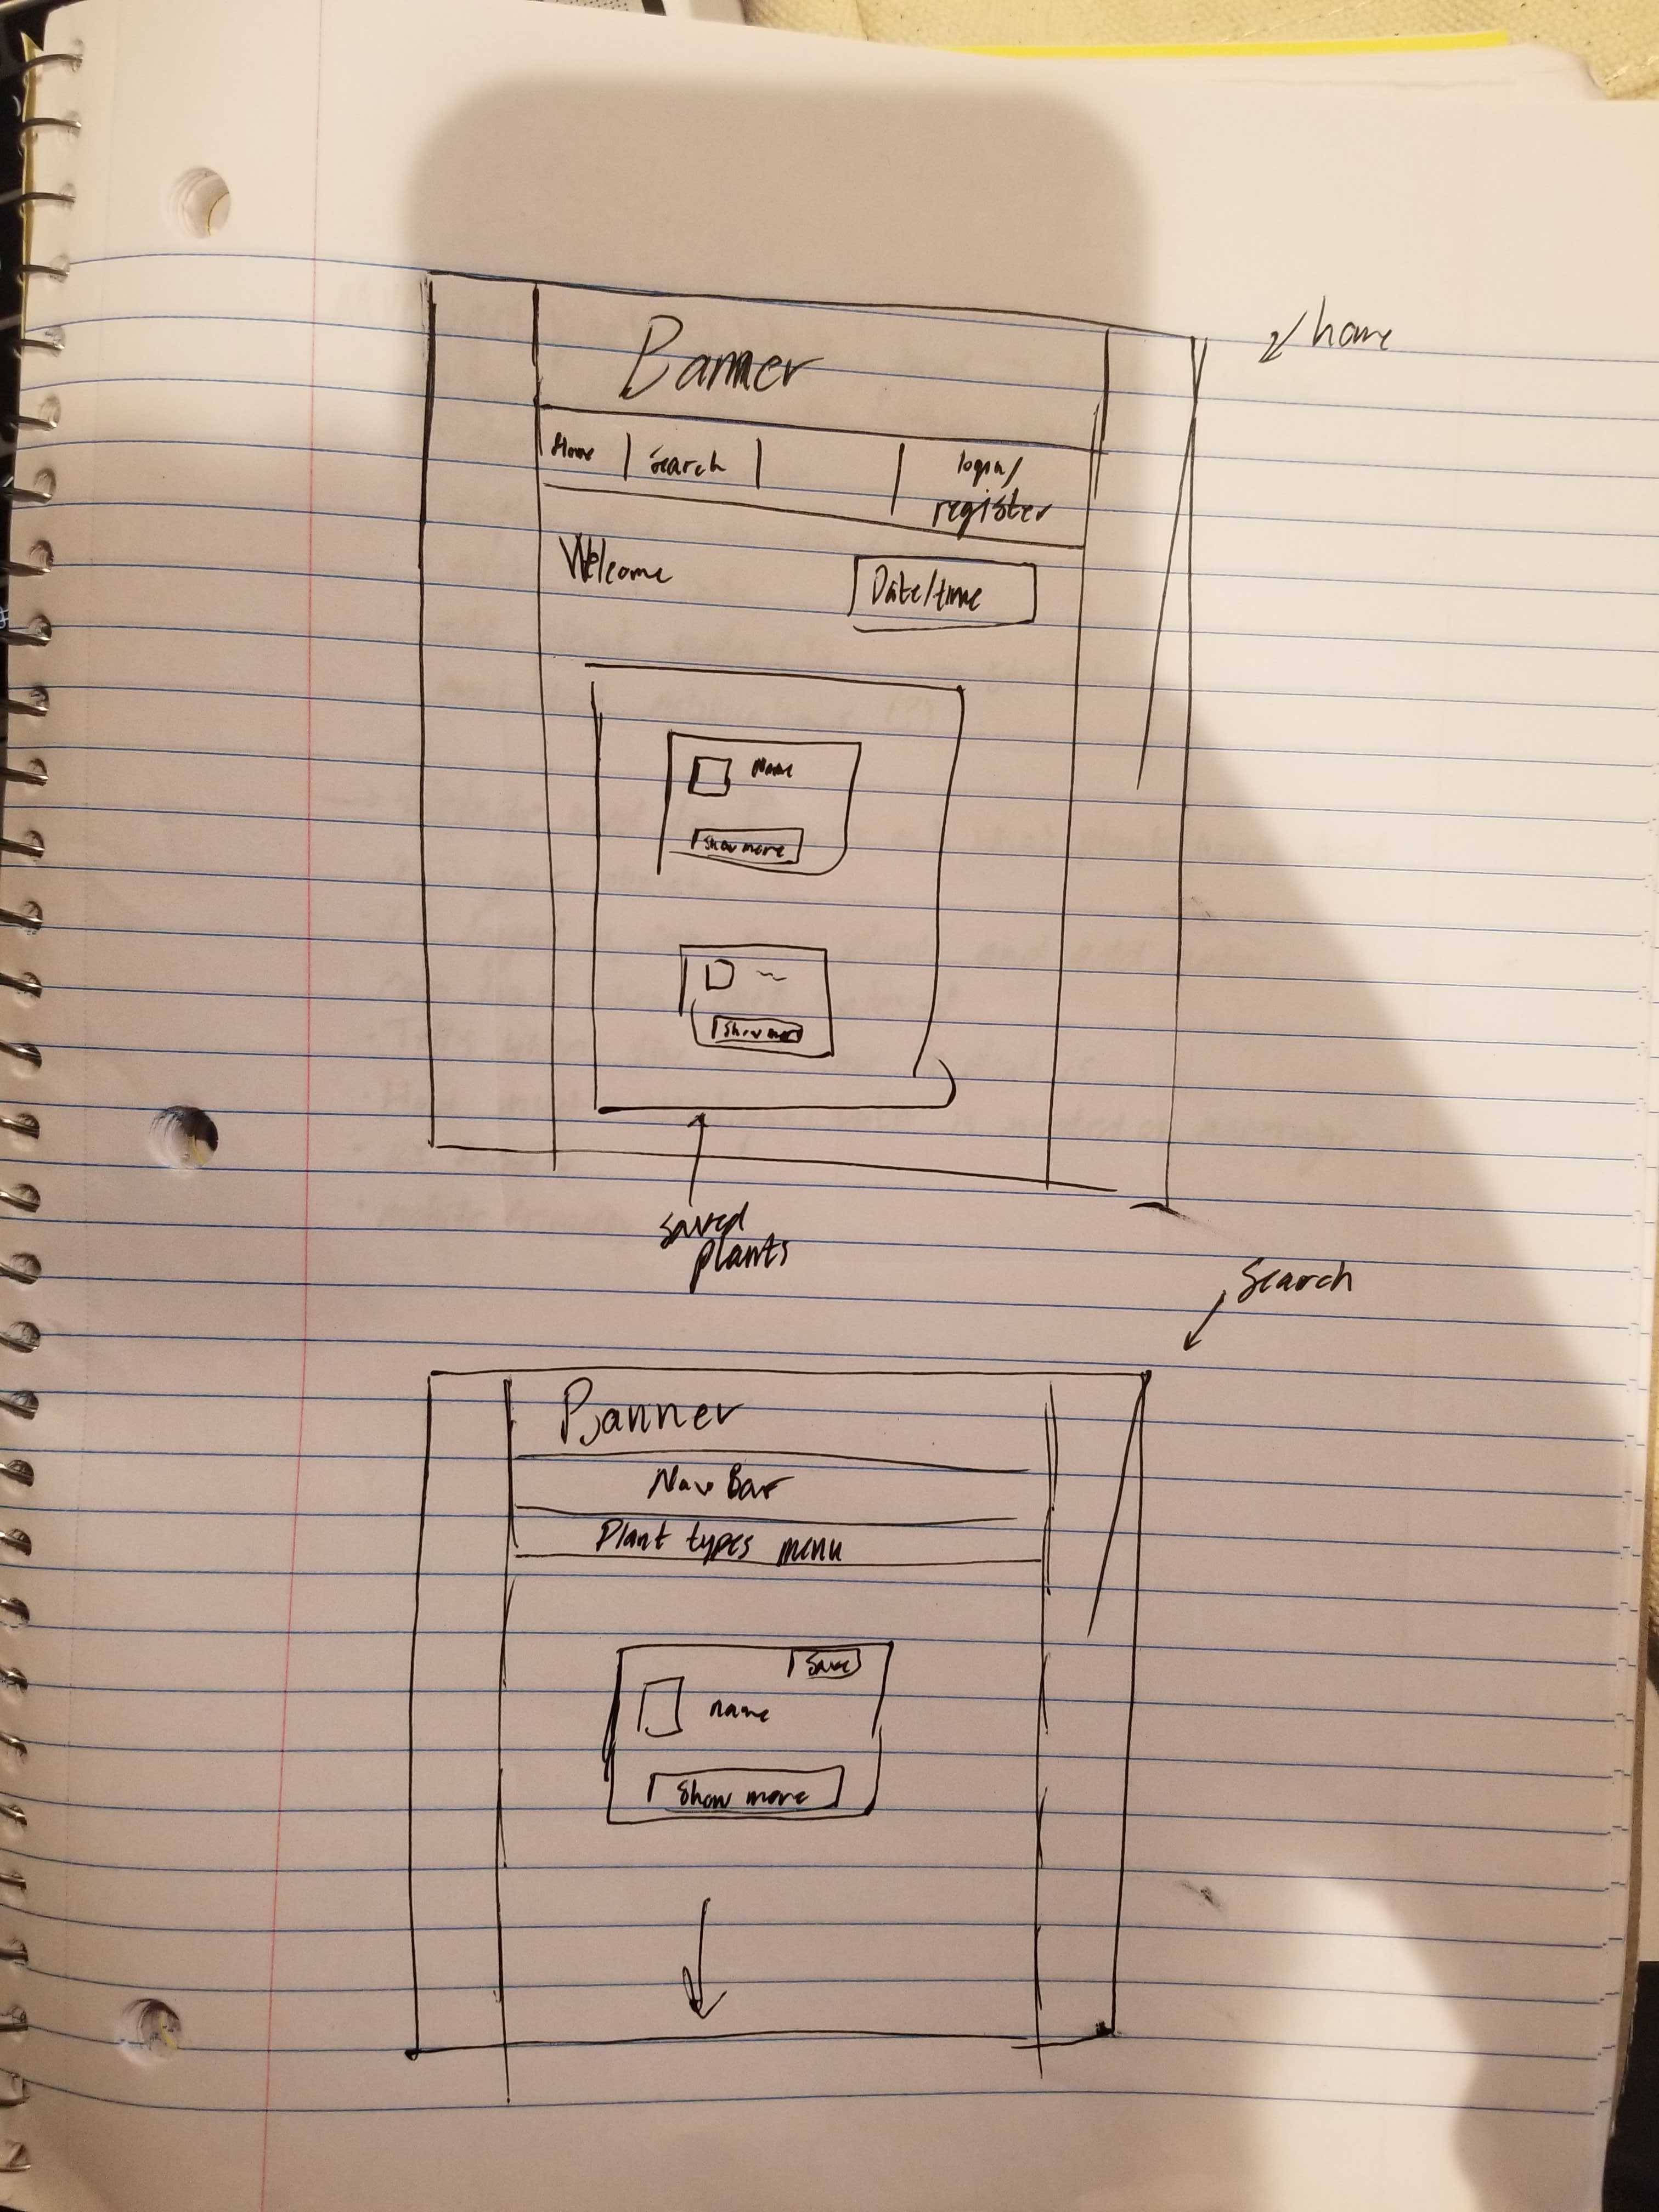 home
Banner
Home
Search
login/
register
Welcome
Date/time
Name
Show more
Show more
saved
plants
Search
Banner
Nav Bar
Plant types menu
Save
name
Show more